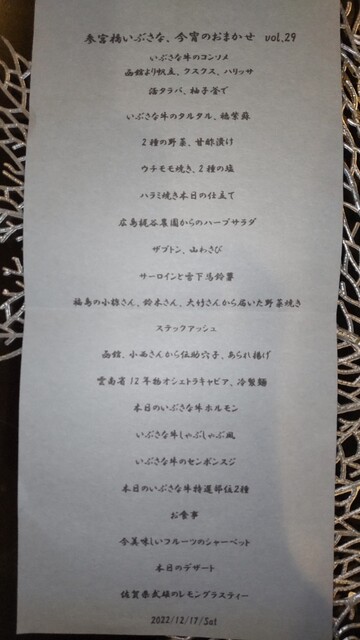 参宮橋いぶさな、今宵のおまかせ vol.29
いぶさな牛のコンソメ
函館より帆立、クスクス、ハリッサ
活タラバ、柚子釜で
いぶさな牛のタルタル、穂紫蘇
2種の野菜、甘酢漬け
ウチモモ焼き、2種の塩
ハラミ焼き本日の仕立て
広島梶谷農園からのハーブサラダ
ザブトン、山わさび
サーロインと雪下馬鈴薯
福島の小篠さん、鈴木さん、大竹さんから届いた野菜焼き
ステックアッシュ
函館、小西さんから伝助穴子、あられ揚げ
雲南省12年物オシェトラキャビア、冷製麺
本日のいぶさな牛ホルモン
いぶさな牛しゃぶしゃぶ風
いぶさな牛のセンボンスジ
本日のいぶさな牛特選部位2種
お食事
今美味しいフルーツのシャーベット
本日のデザート
佐賀県武雄のレモングラスティー
2022/12/17/Sat